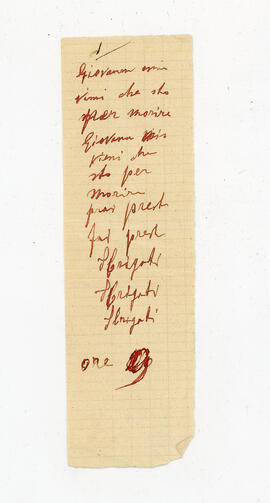 1
Giovanna mia
vieni che sto
per morire
Giovanna mia
vieni che
sto per
morire
prest
fai prest
Sbrigati
Sbrigati
Sbrigati
ore